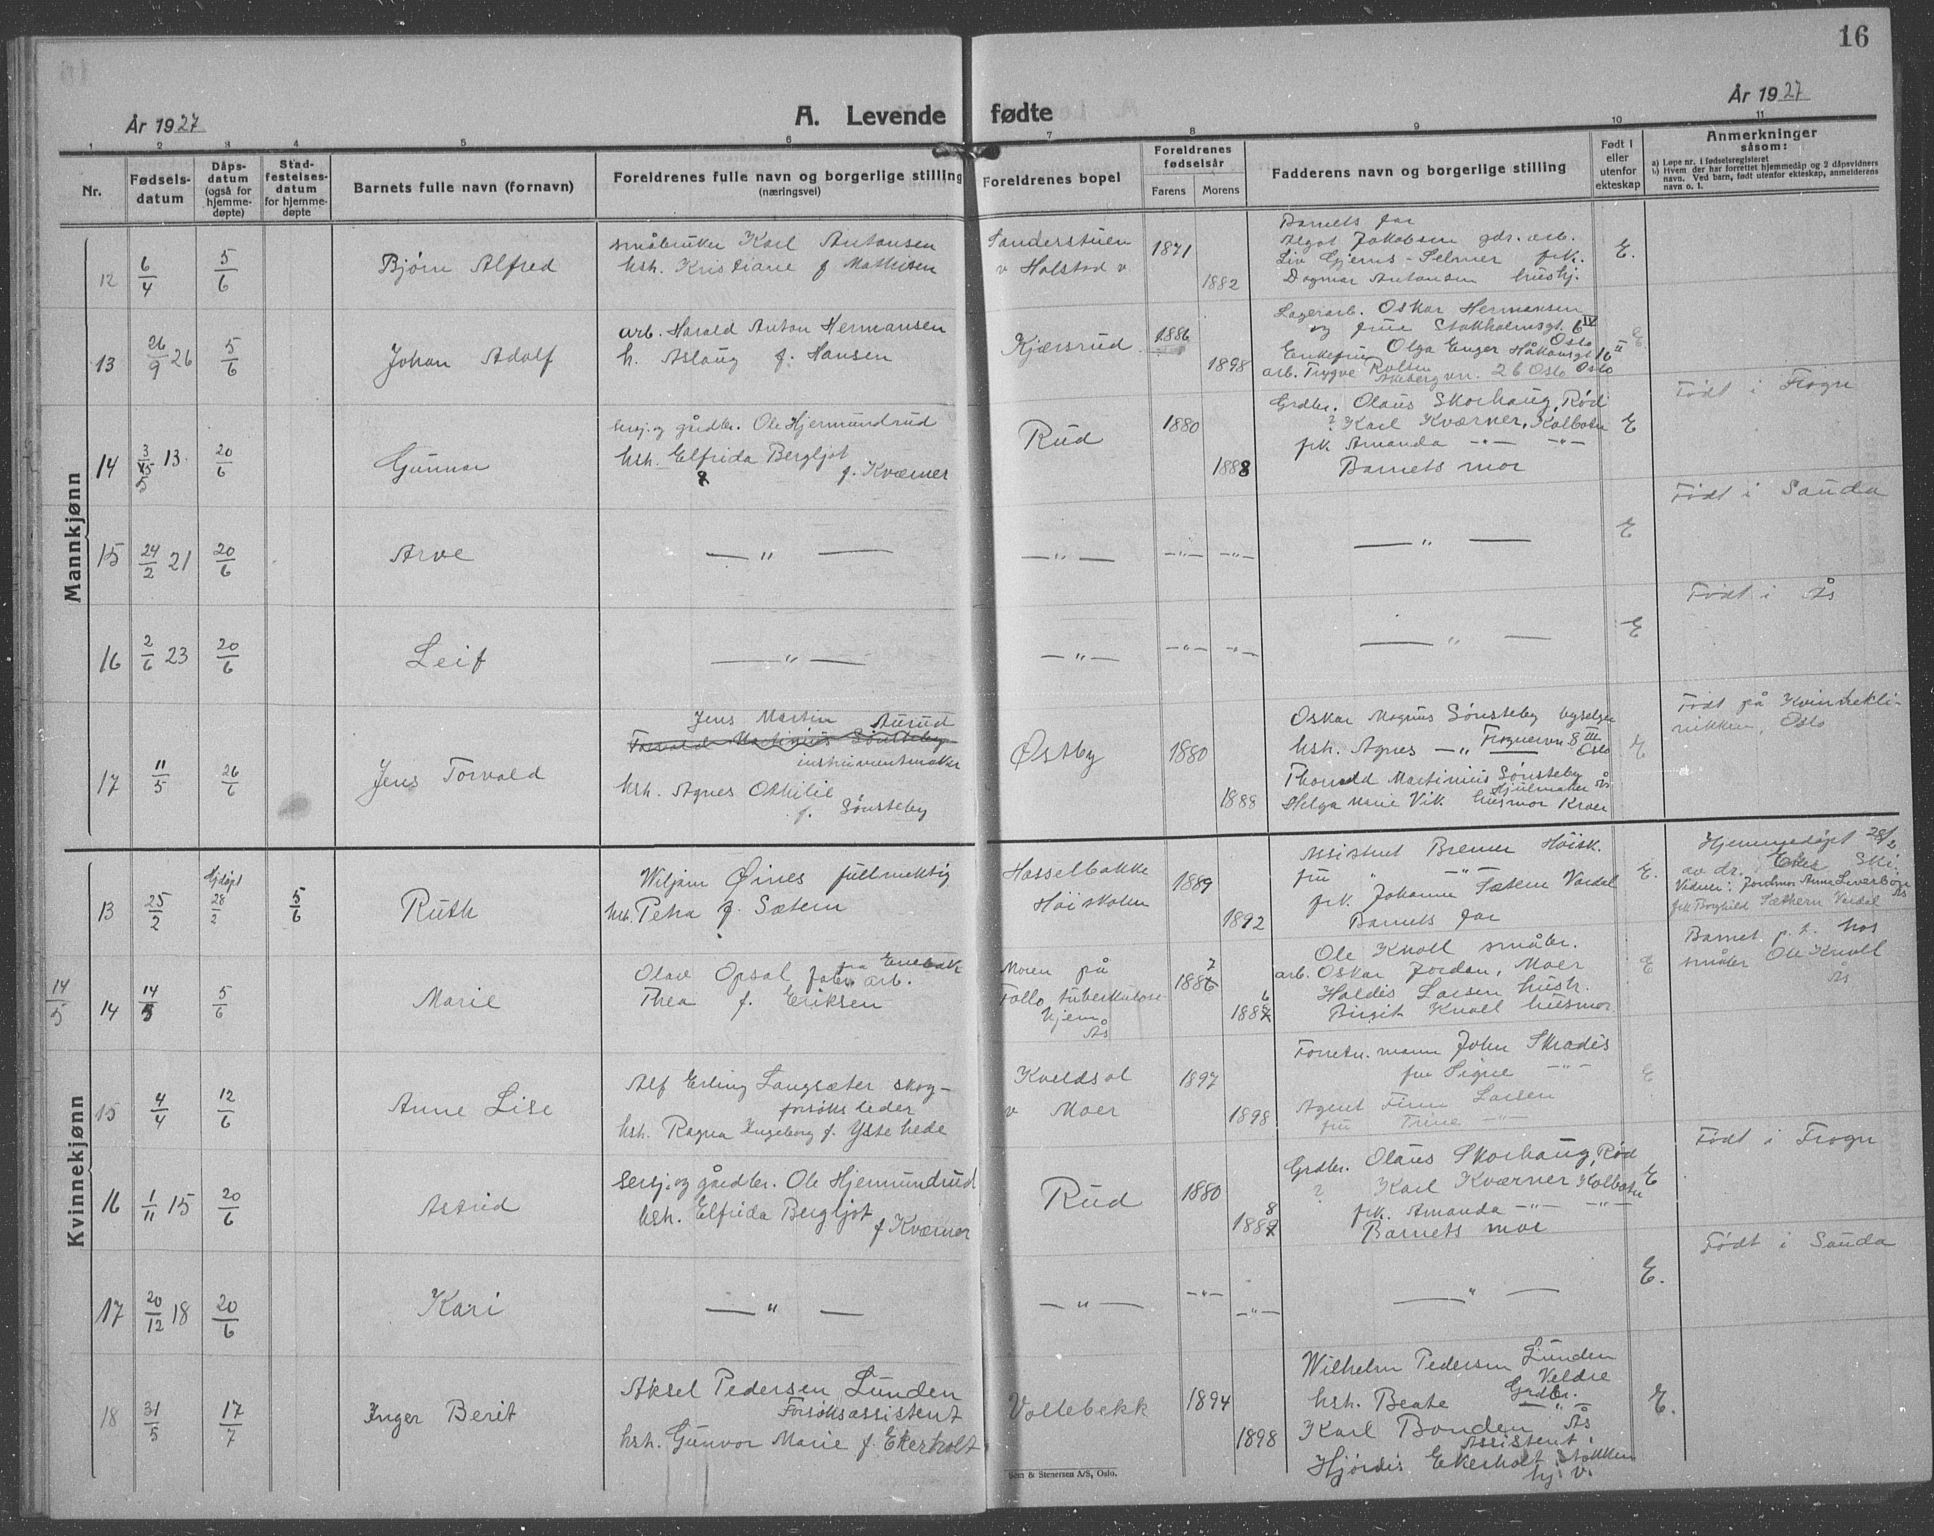 16
År 1927
A. Levende fødte
År 1927
1 2 3 4 5 6 7 8 9 10 11
Nr.
Fødsels-
datum
Dåps-
datum
(også for
hjemme-
døpte)
Stad-
festelses-
datum
for hjemme-
døpte
Barnets fulle navn (fornavn)
Foreldrenes fulle navn og borgerlige stilling
(næringsvei)
Foreldrenes bopel
Foreldrenes
fødselsår
Farens Morens
Fadderens navn og borgerlige stilling
Født i
eller
utenfor
ekteskap
Anmerkninger
såsom:
a) Løpe nr. i fødselsregisteret
b) Hvem der har forrettet hjemmedåp og 2 dåpsvidners
navn. Ved barn, født utenfor ekteskap, anmelderens
navn o. l.
Mannkjønn
12
6/4
5/6
Bjørn Alfred
småbruker Karl Antonsen
hsh. Kristiane f Mathisen
Sanderstuen
v Holstad v
1871
1882
Barnets far
Algot Jakobsen gdr. arb.
Liv Gjems-Selmer frk.
Dagmar Antonsen hushj.
E.
13
26/9 26
5/6
Johan Adolf
arb. Harald Anton Hermansen
h. Aslaug f. Hansen
Kjærsrud
1886
1898
Lagerarb. Oskar Hermansen
og frue Stokholmsgt 6 IV
Oslo
Enkefru Olga Enger Håkonsgt 16 II
arb. Trygve Rolsen Oslo
Akebergvn. 26 Oslo
E
Født i Frogn
14
3/5 13.
20/6
Gunnar
sersj. og gårdbr. Ole Hjermundrud
hsh. Elfrida Bergljot
f. Kværner
Rud
1880
1888
Grdbr. Olaus Skorhaug, Rød
? Karl Kværner, Kolbotn
frk. Amanda -"- -"-
Barnets mor
E
Født i Sauda
15
24/2 21
20/6
Arve
— " —
— " —
-"- -"-
— " —
E
Født i Ås
16
2/6 23
20/6
Leif
— " —
— " —
-"- -"-
— " —
E
17
11/5
26/6
Jens Torvald
Jens Martin Aurud
Torvald Martinius Sønsteby
instrumentmaker
hsh. Agnes Othilie
f. Sønsteby
Østby
1880
1888
Oskar Magnus Sønsteby byselger
hsh. Agnes -"- Frognervn 8 III
Oslo
Thorvald Martinius Sønsteby
Hjulmaker Ås
Helga Marie Vik husmor Kroer
E
Født på Kvinnekli-
nikken, Oslo
Kvinnekjønn
13
25/2
Hjdøpt
28/2
5/6
Ruth
Wiljam Øines fullmektig
hsh. Petra f. Sætern
Hasselbakke
Høiskolen
1889
1892
Assistent Bremer Høisk.
fru " -"-
frk. Johanne Sætern Verdal
Barnets far
E.
Hjemmedøpt 28/2
av dr. Ski
Vidner: Jordmor Anna Ås
frk Borghild Sæthern Verdal
14/5
14
14/5
5/6
Marie
fra Enebak
Olav Opsal fabr. arb.
Thea f. Eriksen
Moren på
Follo tuberkulose
hjem
Ås
1886 7
1887 6
Ole Knoll småbr.
arb. Oskar Jordan, Moer
Haldis Larsen hustr.
Birgit Knoll husmor
E
Barnet p. t. hos
småbr Ole Knoll
Ås
15
4/4
12/6
Anne Lise
Alf Erling Langsæter skog-
forsøks leder
hsh. Ragna Ingeborg f. Ystehede
Kveldsol
v Moer
1897
1898
Forretn. mann John Skradis
fru Signe -"-
Agent Finn Larsen
fru Trine -"-
E
Født i Frogn
16
1/11 15
20/6
Astrid
Sersj. og gårdbr. Ole Hjermundrud
hsh. Elfrida Bergljot
f Kværner
Rud
1880
8
1887
Grdbr. Olaus Skorhaug, Rød
? Karl Kværner Kolbotn
frk. Amanda -"- -"-
Barnets mor
E
Født i Sauda
17
20/12 18
20/6
Kari
— " —
— " —
-"- -"-
— " —
E.
18
31/5
17/7
Inger Berit
Aksel Pedersen Lunden
Forsøksassistent
hsh. Gunvor Marie f. Ekerholt
Vollebekk
1894
1898
Wilhelm Pedersen Lunden
Veldre
Grdbr.
hsh. Beate -"-
Karl Bonden Ås
Assistent
Hjørdis Ekerholt, Stokken
hj. v.
E.
Sem & Stenersen A/S, Oslo.